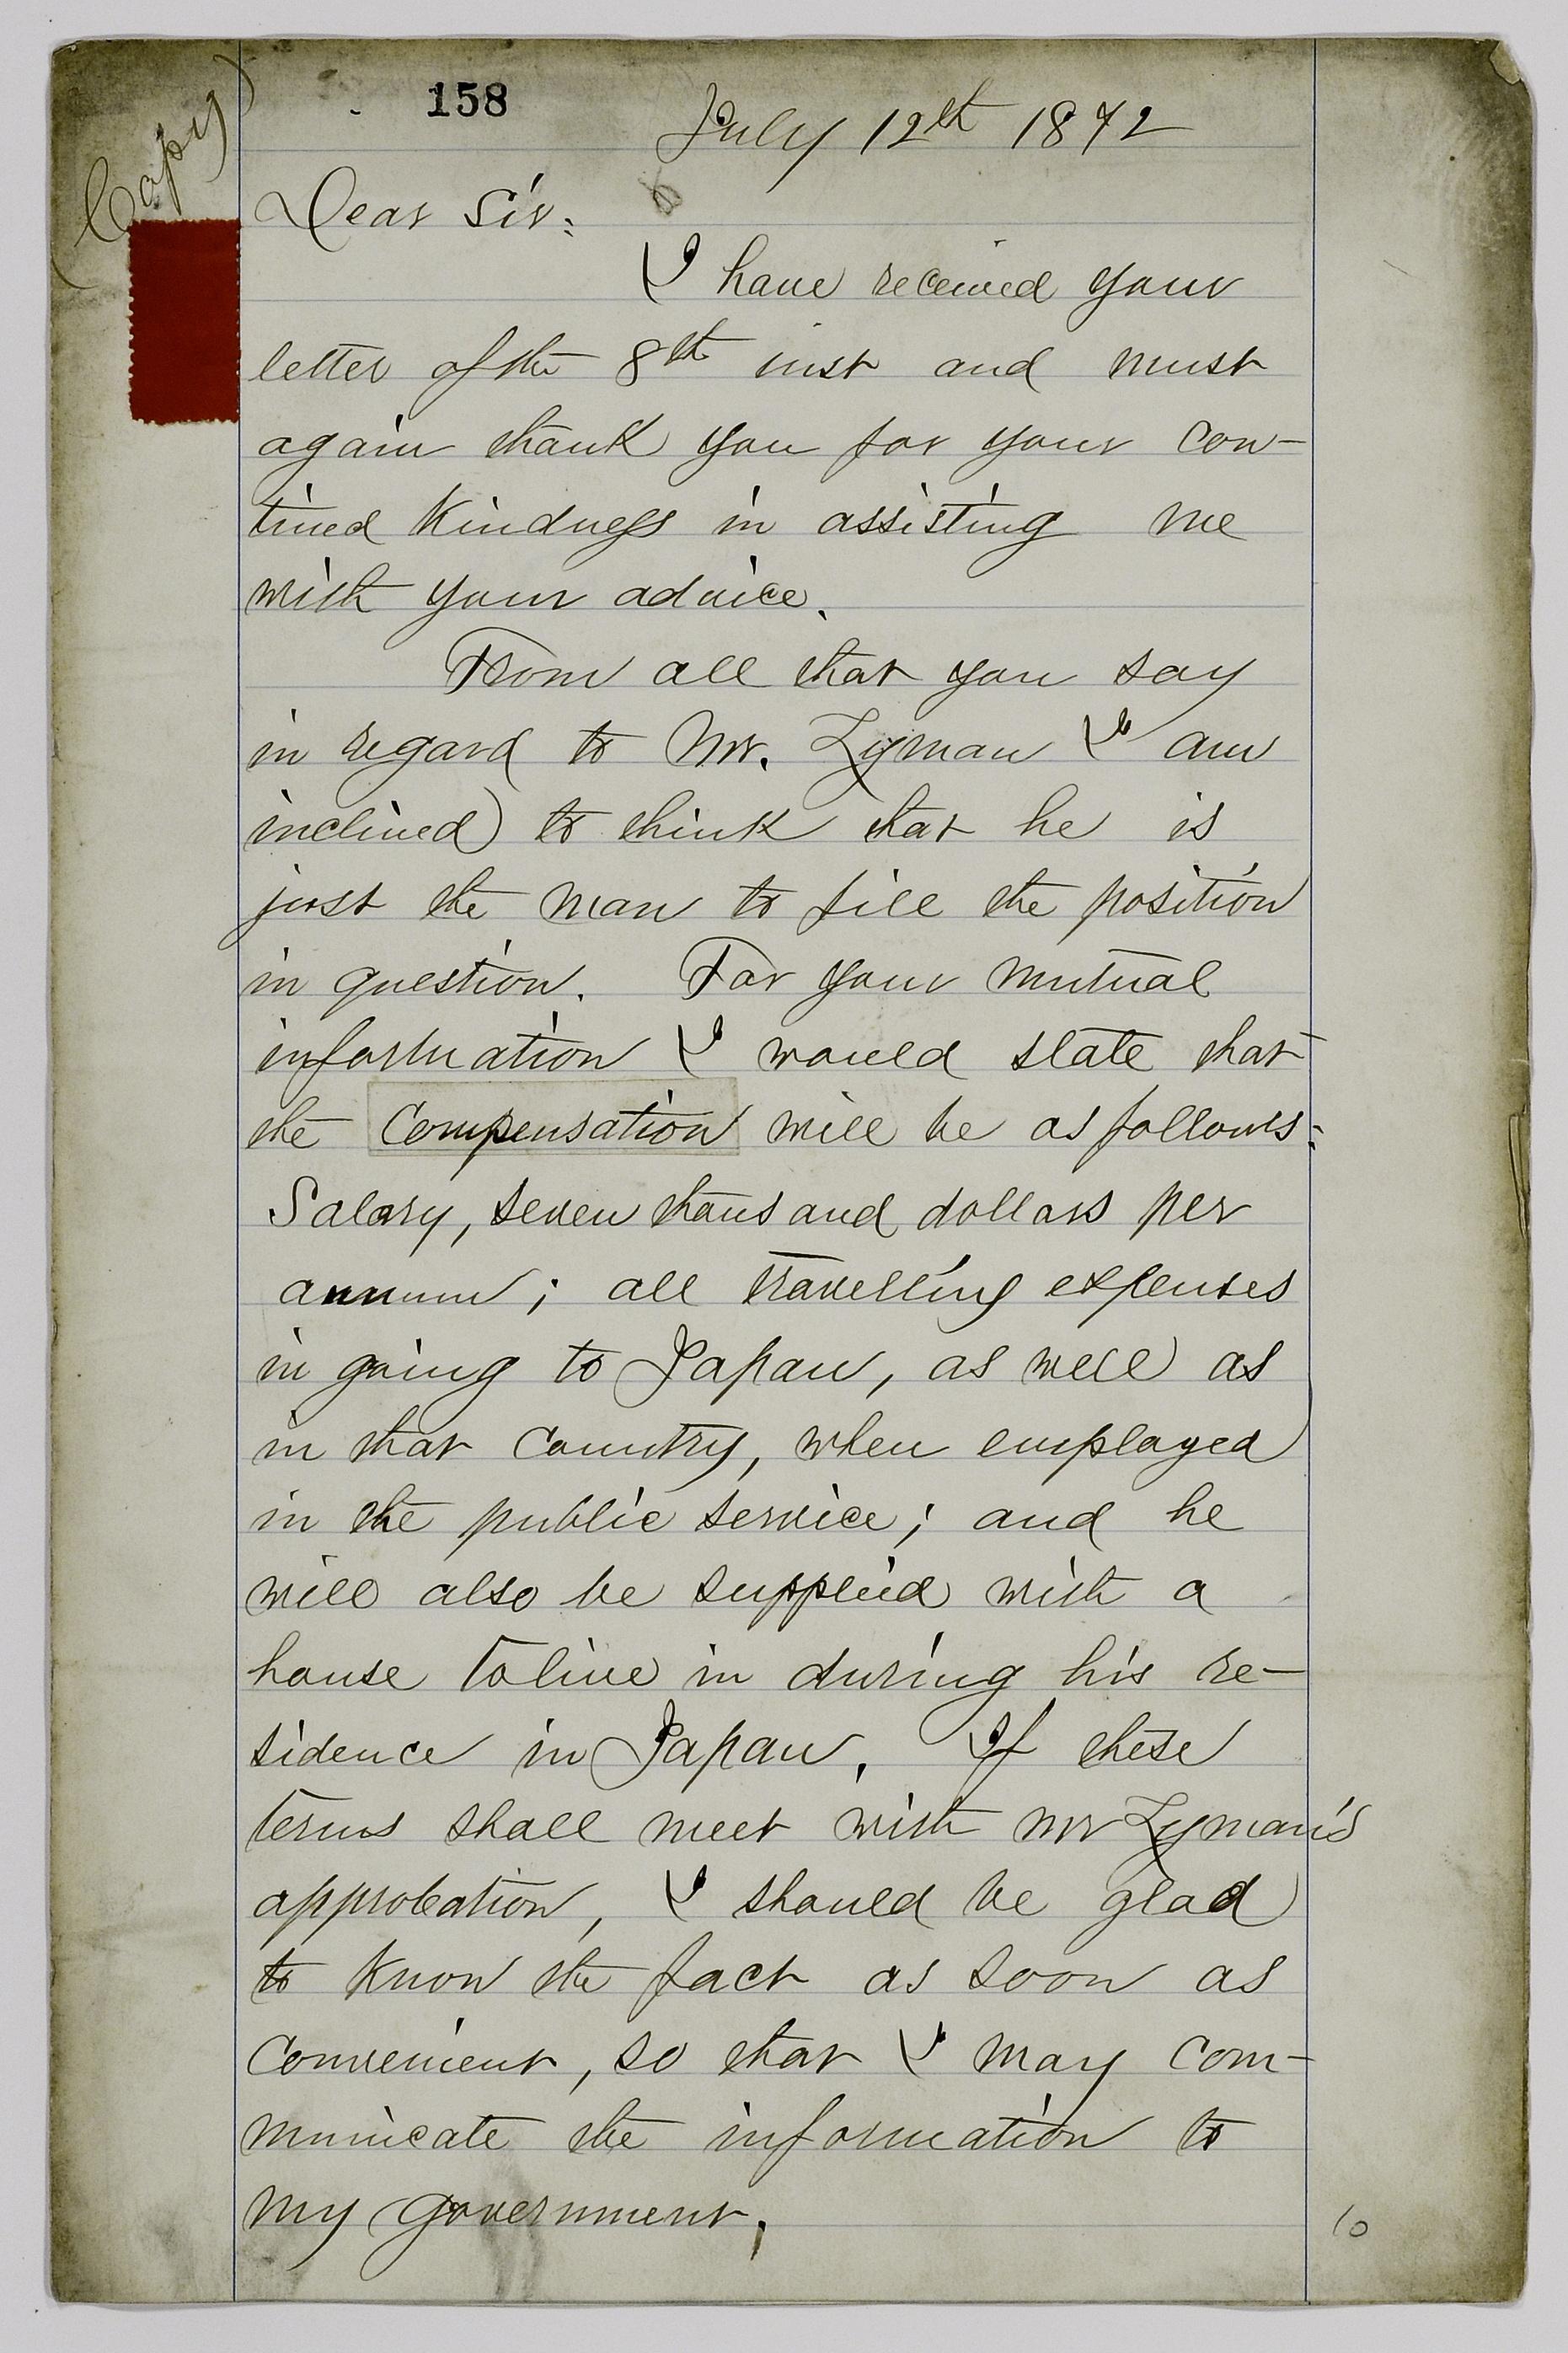 (Copy)
158
July 12th 1872
Dear Sir:
I have received your
letter of the 8th inst and must
again thank you for your con-
tined kindness in assisting me
with your advice.
From all that you say
in regard to Mr. Lyman I am
inclined to think that he is
just the man to fill the position
in question. For your mutual
information I would state that
the Compensation will be as follows:
Salary, seven thousand dollars per
annum; all travelling expenses
in going to Japan, as well as
in that Country, when employed
in the public service; and he
will also be supplied with a
house to live in during his re-
sidence in Japan. If these
terms shall meet with Mr Lyman's
approbation, I should be glad
to know the fact as soon as
Convenient, so that I may com-
municate the information to
my Government.
10